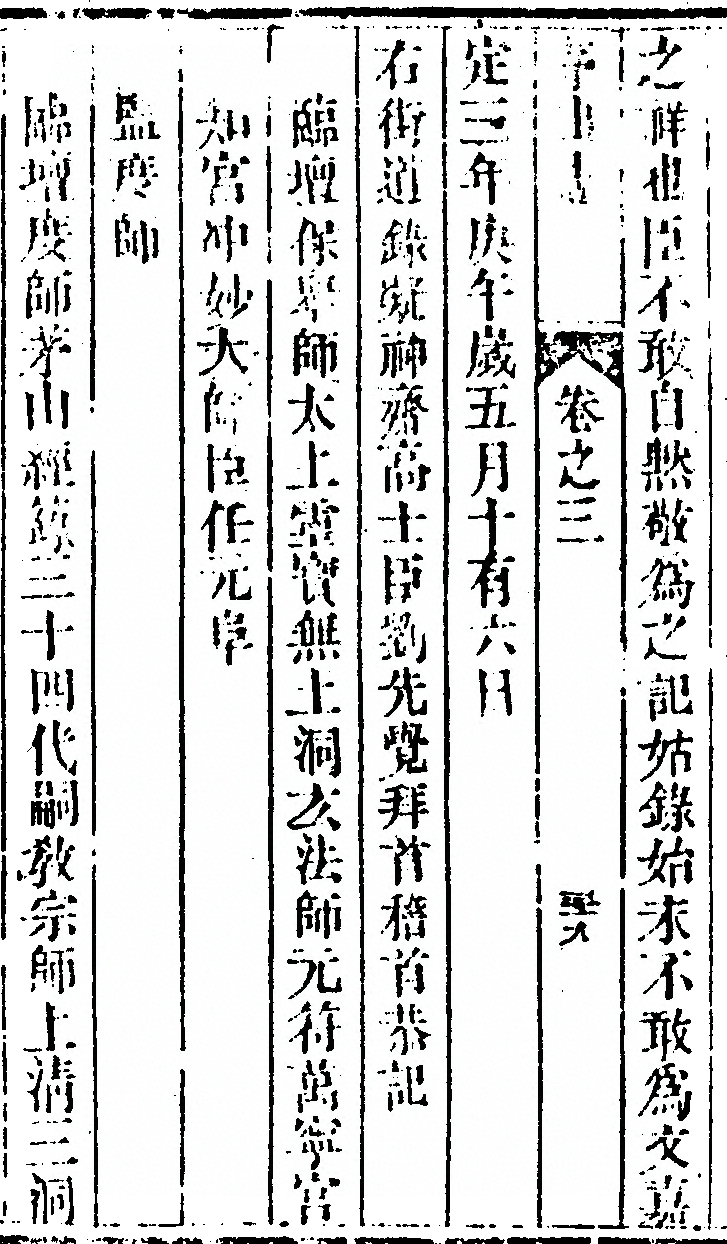 之祥也臣不敢自㷊敬爲之記姑錄始末不敢爲文嘉
茅山志 卷之三
定三年庚午歲五月十有六日
右街道錄凝神齋高士臣劉先覺拜首稽首恭記
臨壇保舉師太上靈寶無上洞玄法師元符萬寧宮
知宮冲妙大師臣任元阜
監度師
臨壇度師茅山經籙三十四代嗣教宗師上清三洞